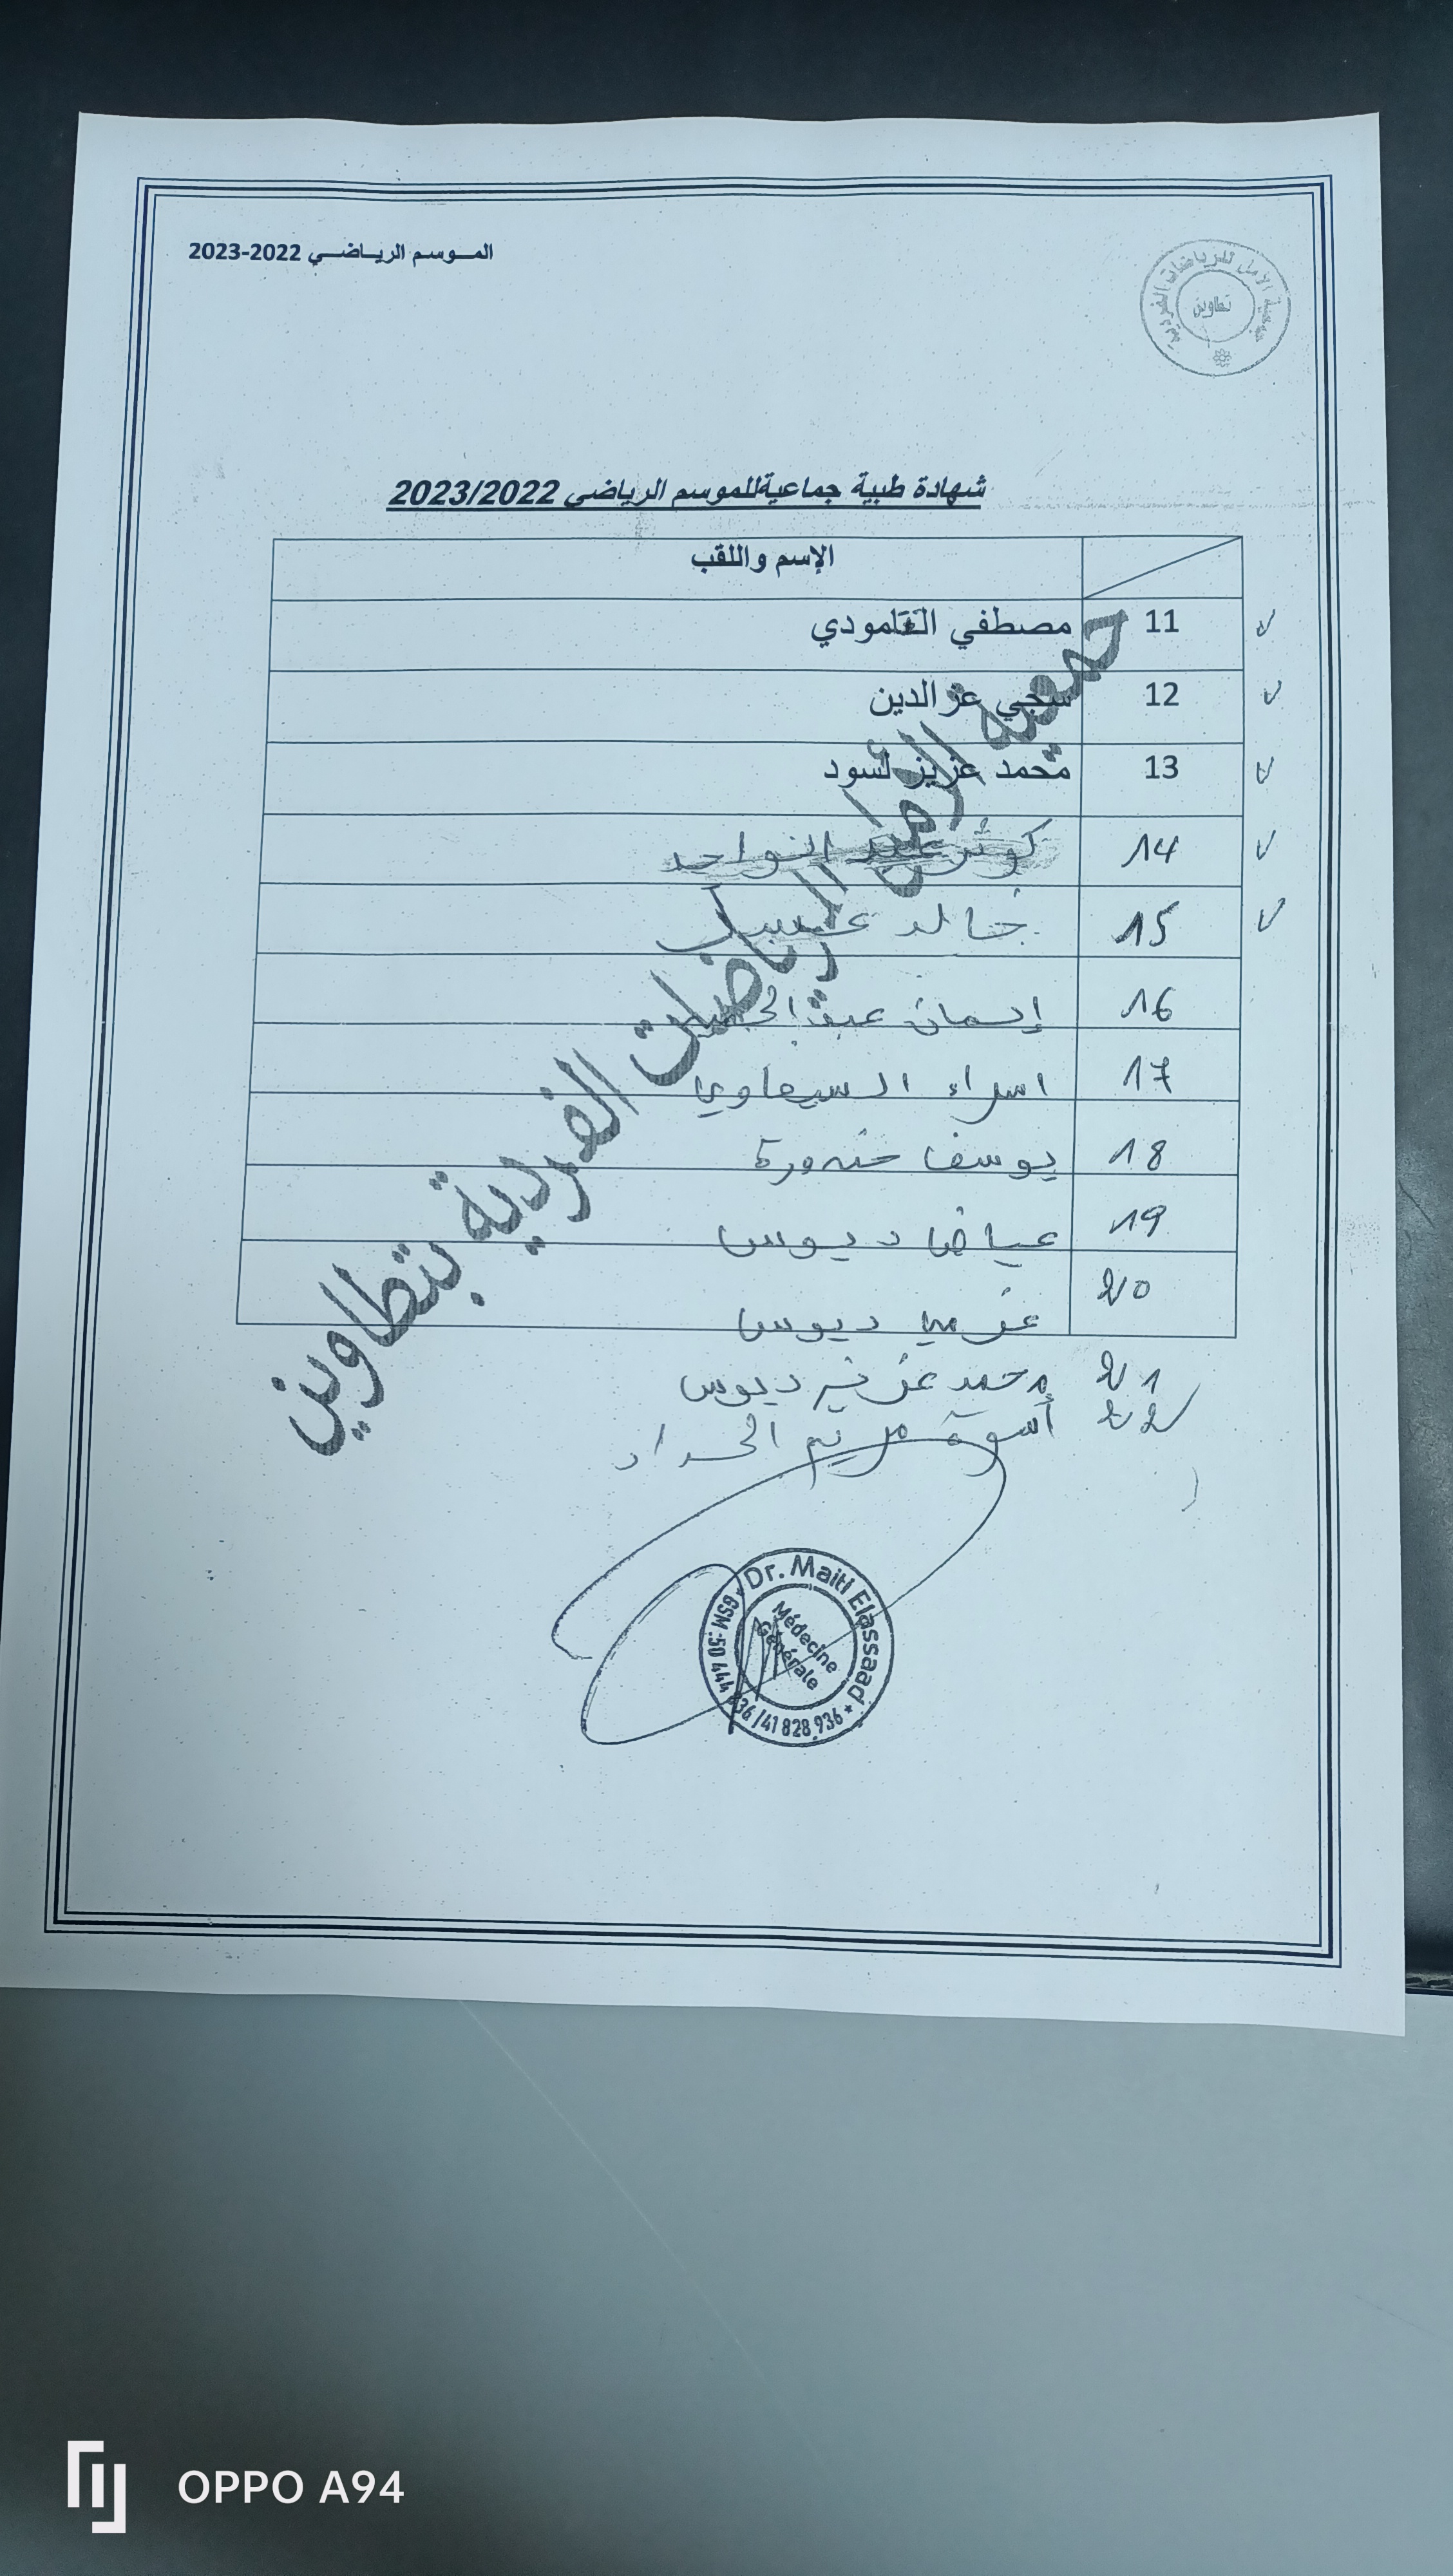 الموسم الرياضي 2022-2023
جمعية الأمل للرياضات الفردية
تطاوين
شهادة طبية جماعيةللموسم الرياضي 2023/2022
الإسم واللقب
11 مصطفي
12 سجي عزالدين
13 محمد عزيز لسود
14 كوثر عبد الواحد
15 خالد
16 إيمان
17 اسراء السيعاوي
18 يوسف
19 عياض ديوس
20 عزمي ديوس
21 محمد عزيز ديوس
22 أسوة مريم الحداد
جمعية الأمل للرياضات الفردية بتطاوين
Dr. Maiti Elassaad
Médecine
Générale
GSM: 50 444 936 / 41 828 936
OPPO A94